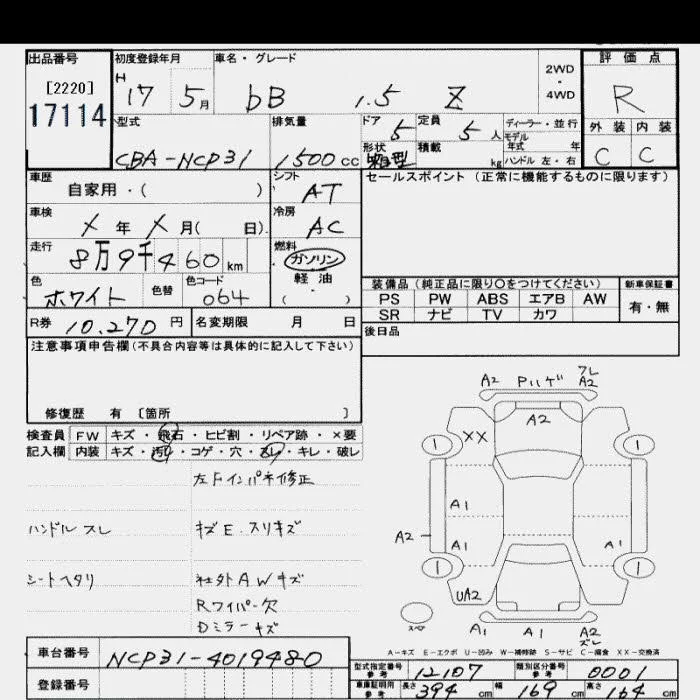 出品番号
[2220]
17114
初度登録年月
H 17 5月
車名・グレード
bB 1.5 Z
2WD・4WD
評価点
R
型式
CBA-NCP31
排気量
1500cc
ドア
5
定員
5人
ディーラー・並行
モデル
年式 年
形状
箱型
積載
kg
ハンドル 左・右
外装 内装
C C
車歴
自家用・( )
シフト
AT
セールスポイント (正常に機能するものに限ります)
車検
X年X月( 日)
冷房
AC
走行
8万9千460km
燃料
ガソリン
軽油
・
( )
色
ホワイト
色替
色コード
064
装備品(純正品に限り○をつけてください)
新車保証書
PS PW ABS エアB AW
有・無
SR ナビ TV カワ
R券 10,270円
名変期限 月 日
後日品
注意事項申告欄(不具合内容等は具体的に記入して下さい)
修復歴 有 〔箇所 〕
検査員 FW キズ・飛石・ヒビ割・リペア跡・×要
記入欄 内装 キズ・汚れ・コゲ・穴・スレ・キレ・破レ
左Fインパネ修正
ハンドルスレ
キズE.スリキズ
シートヘタリ
社外AWキズ
Rワイパー欠
Dミラーキズ
A2 Pハゲ フレ A2
A2
XX
1 1
A1
A2
A1 A1
1 1
UA2
スペア
A1 A1 A2
ズレ
A-キズ E-エクボ U-凹み W-補修跡 S-サビ C-腐食 XX-交換済
車台番号
NCP31-4019480
登録番号
型式指定番号
参考
12107
類別区分番号
参考
0001
車庫証明用
参考
長さ 394cm 幅 169cm 高さ 164cm